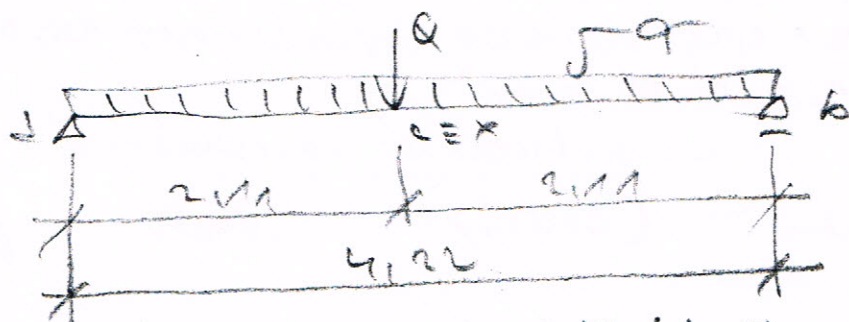 Q q
a c≡x b
2,11 2,11
4,22